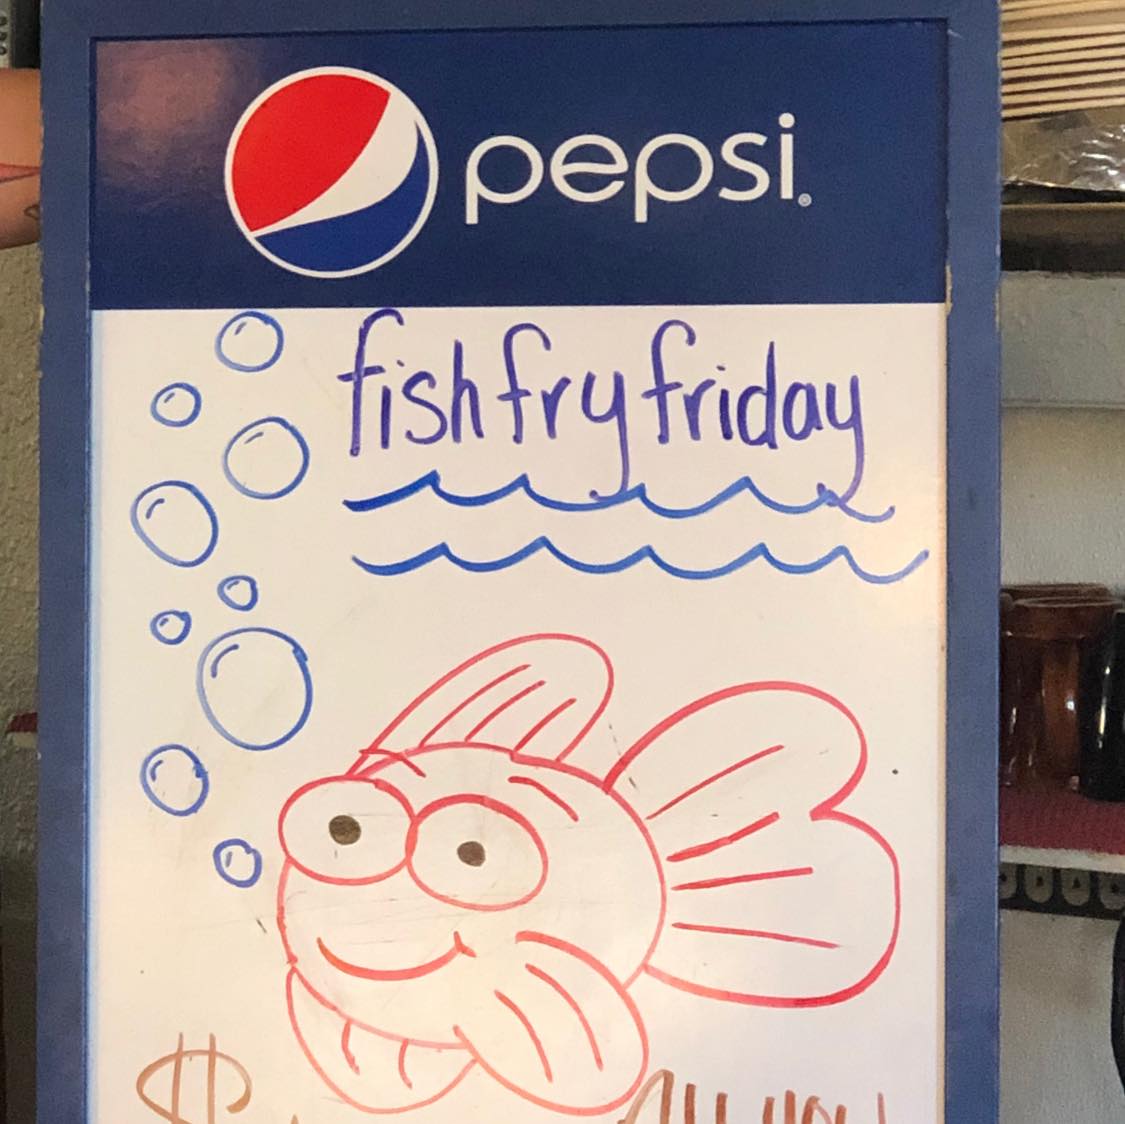 pepsi®
fish fry friday
$